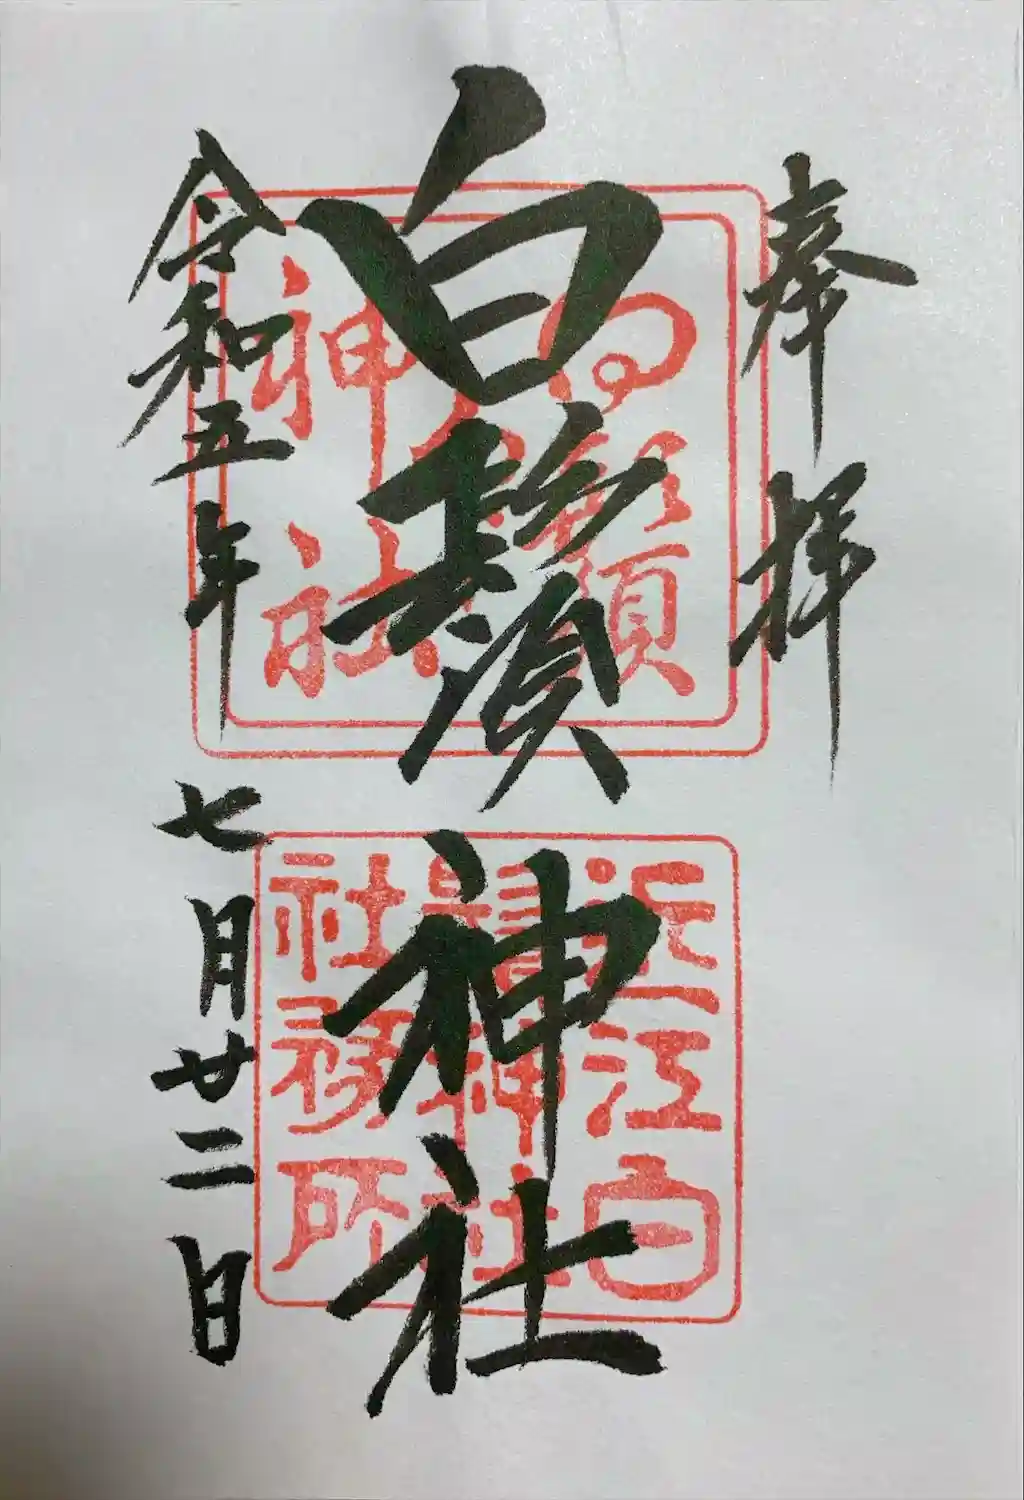 奉拝
白鬚神社
令和五年七月廿二日
白鬚
神社
近江白
鬚神社
社務所